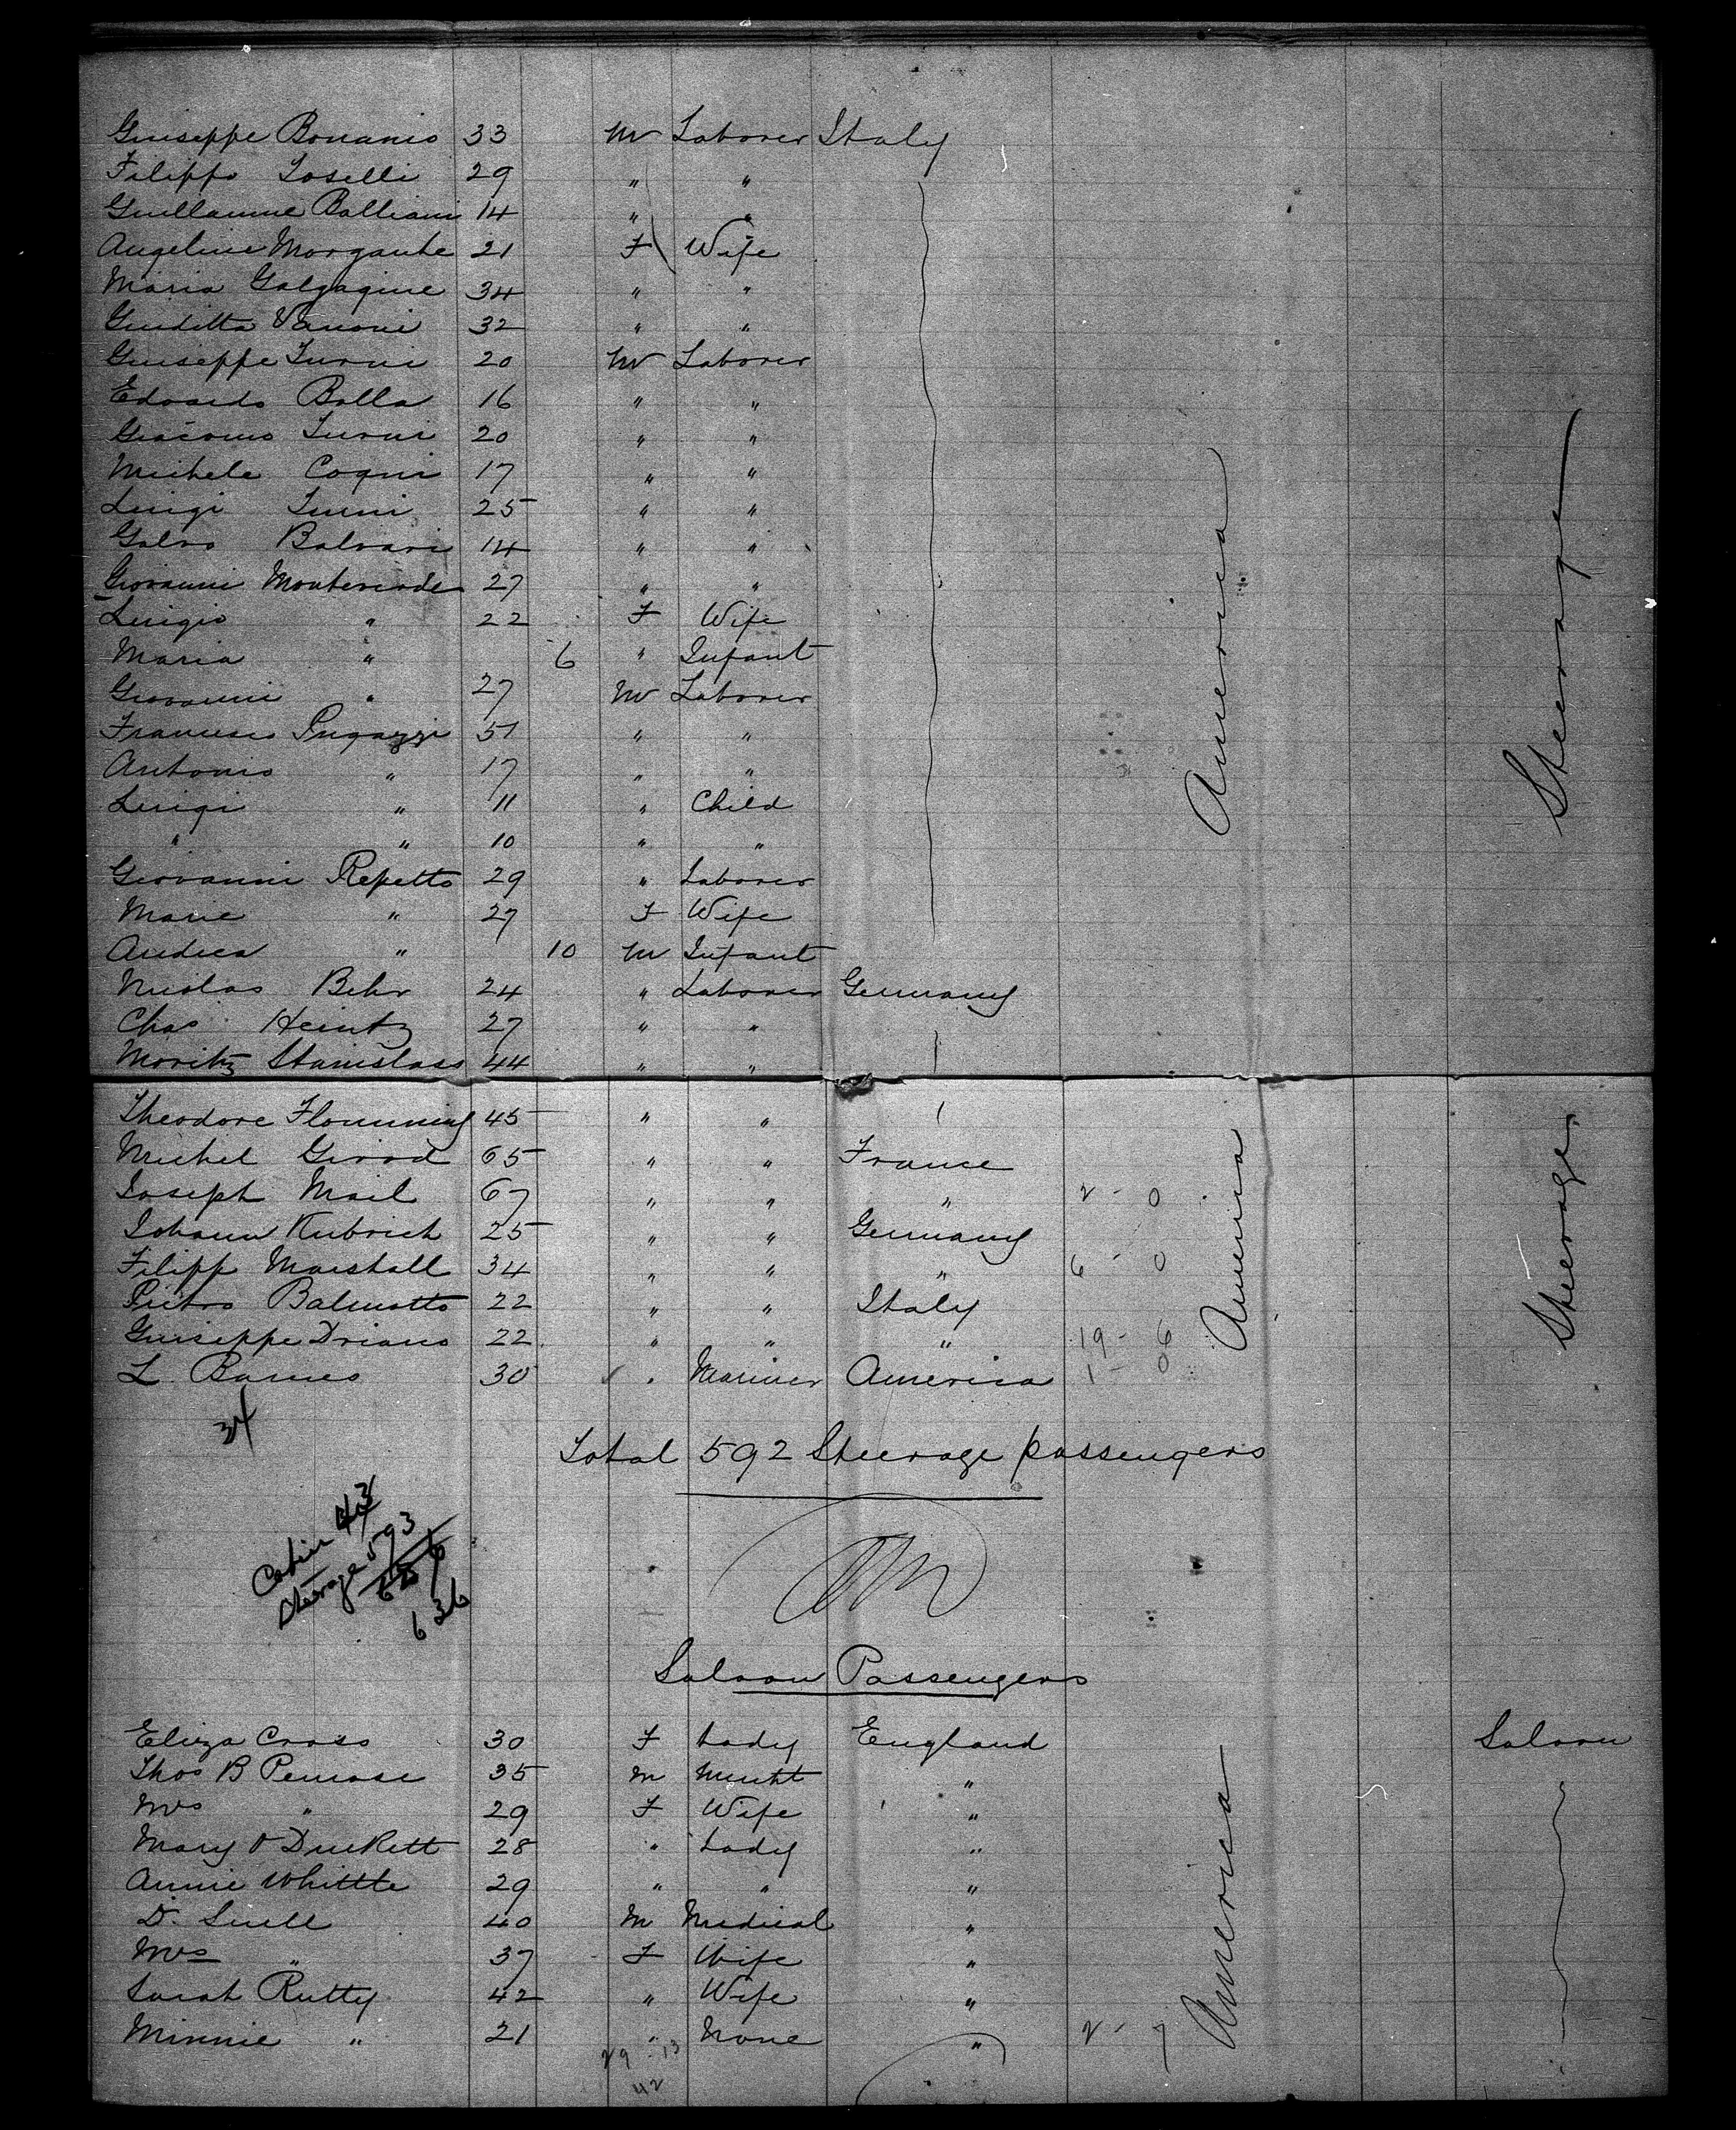 Giuseppe Bonanio 33 M Laborer Italy
Filippo Loselli 29 " "
Guillaume Balliani 14 " "
Angeline Morgante 21 F Wife
Maria Galgagine 34 " "
Giuditta Vanoni 32 " "
Giuseppe Turni 20 M Laborer
Edoardo Balla 16 " "
Giacomo Turni 20 " "
Michele Coqui 17 " "
Luigi Turni 25 " "
Galvo Balvari 14 " "
Giovanni Monteverde 27 " "
Luigia " 22 F Wife
Maria " 6 " Infant
Giovanni " 27 M Laborer
Francesco Pugazzi 51 " "
Antonio " 17 " "
Luigi " 11 " Child
" " 10 " "
Giovanni Repetto 29 " Laborer
Marie " 27 F Wife
Andrea " 10 M Infant
Nicolas Behr 24 " Laborer Germany
Chas Heintz 27 " "
Moritz Stanislass 44 " "
America
Steerage
Theodore Flomming 45 " "
Michel Girod 65 " " France
Joseph Mail 67 " " " 2 - 0
Johann Kubrich 25 " " Germany
Filipp Marshall 34 " " " 6 - 0
Pietro Balmotto 22 " " Italy
Giuseppe Driano 22 " " " 19 - 6
L. Barnes 30 " Mariner America 1 - 0
America
Steerage
34
Total 592 Steerage passengers
Cabin 43
Steerage 593
636
Saloon Passengers
Eliza Cross 30 F Lady England Saloon
Thos B Penrose 35 M Mercht "
Mrs " 29 F Wife "
Mary O Duckett 28 " Lady "
Annie Whittle 29 " " "
D. Snell 40 M Medical "
Mrs " 37 F Wife "
Sarah Rutty 42 " Wife "
Minnie " 21 " None " 2 - 7
America
29 - 13
42